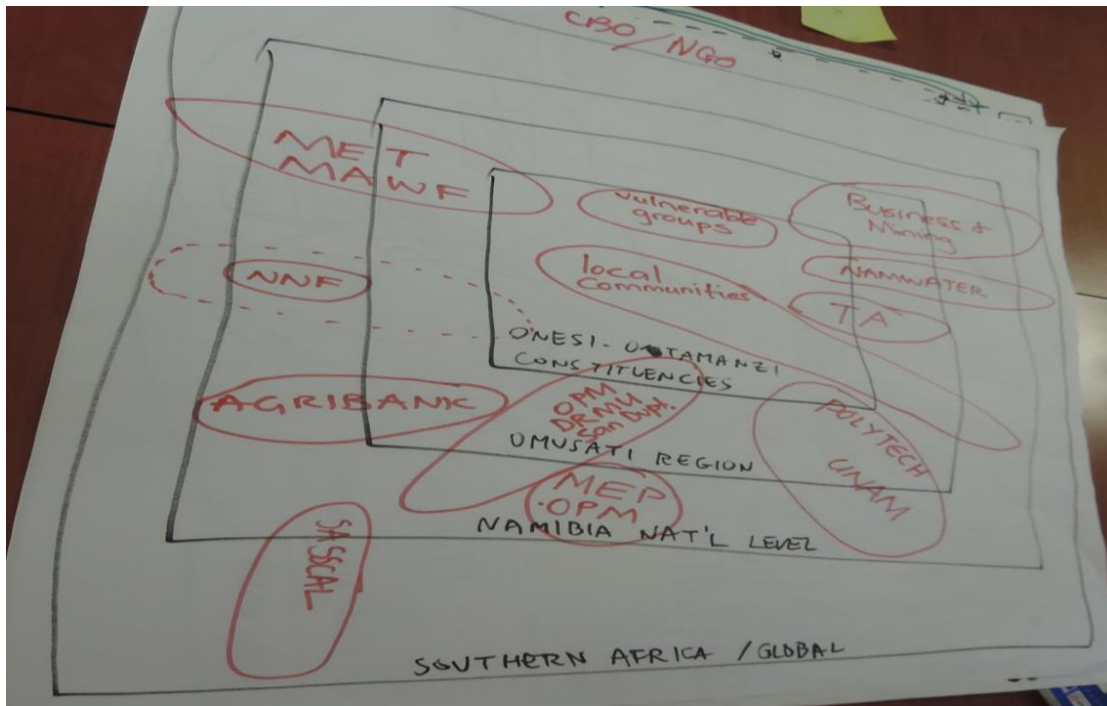 CBO/NGO
MET
MAWF
vulnerable
groups
Business &
Mining
NNF
local
communities
NAMWATER
TA
ONESI - OKTAMANZI
CONSTITUENCIES
AGRIBANK
OPM
DRMU
San Dvpt.
POLYTECH
UNAM
OMUSATI REGION
MEP
.OPM
NAMIBIA NAT'L LEVEL
SASSCAL
SOUTHERN AFRICA / GLOBAL